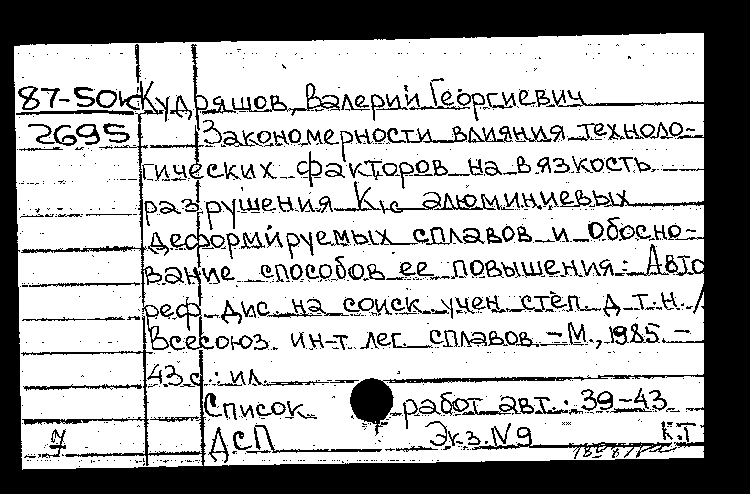 87-50к Кудряшов, Валерий Георгиевич
2695 Закономерности влияния техноло-
гических факторов на вязкость
разрушения K1c алюминиевых
деформируемых сплавов и обосно-
вание способов ее повышения: Авто
реф. дис. на соиск. учен. степ. д.т.н. /
Всесоюз. ин-т лег. сплавов. – М., 1985. –
43 с.: ил.
Список работ авт.: 39-43
7 ДСП Экз. №9 К.Т